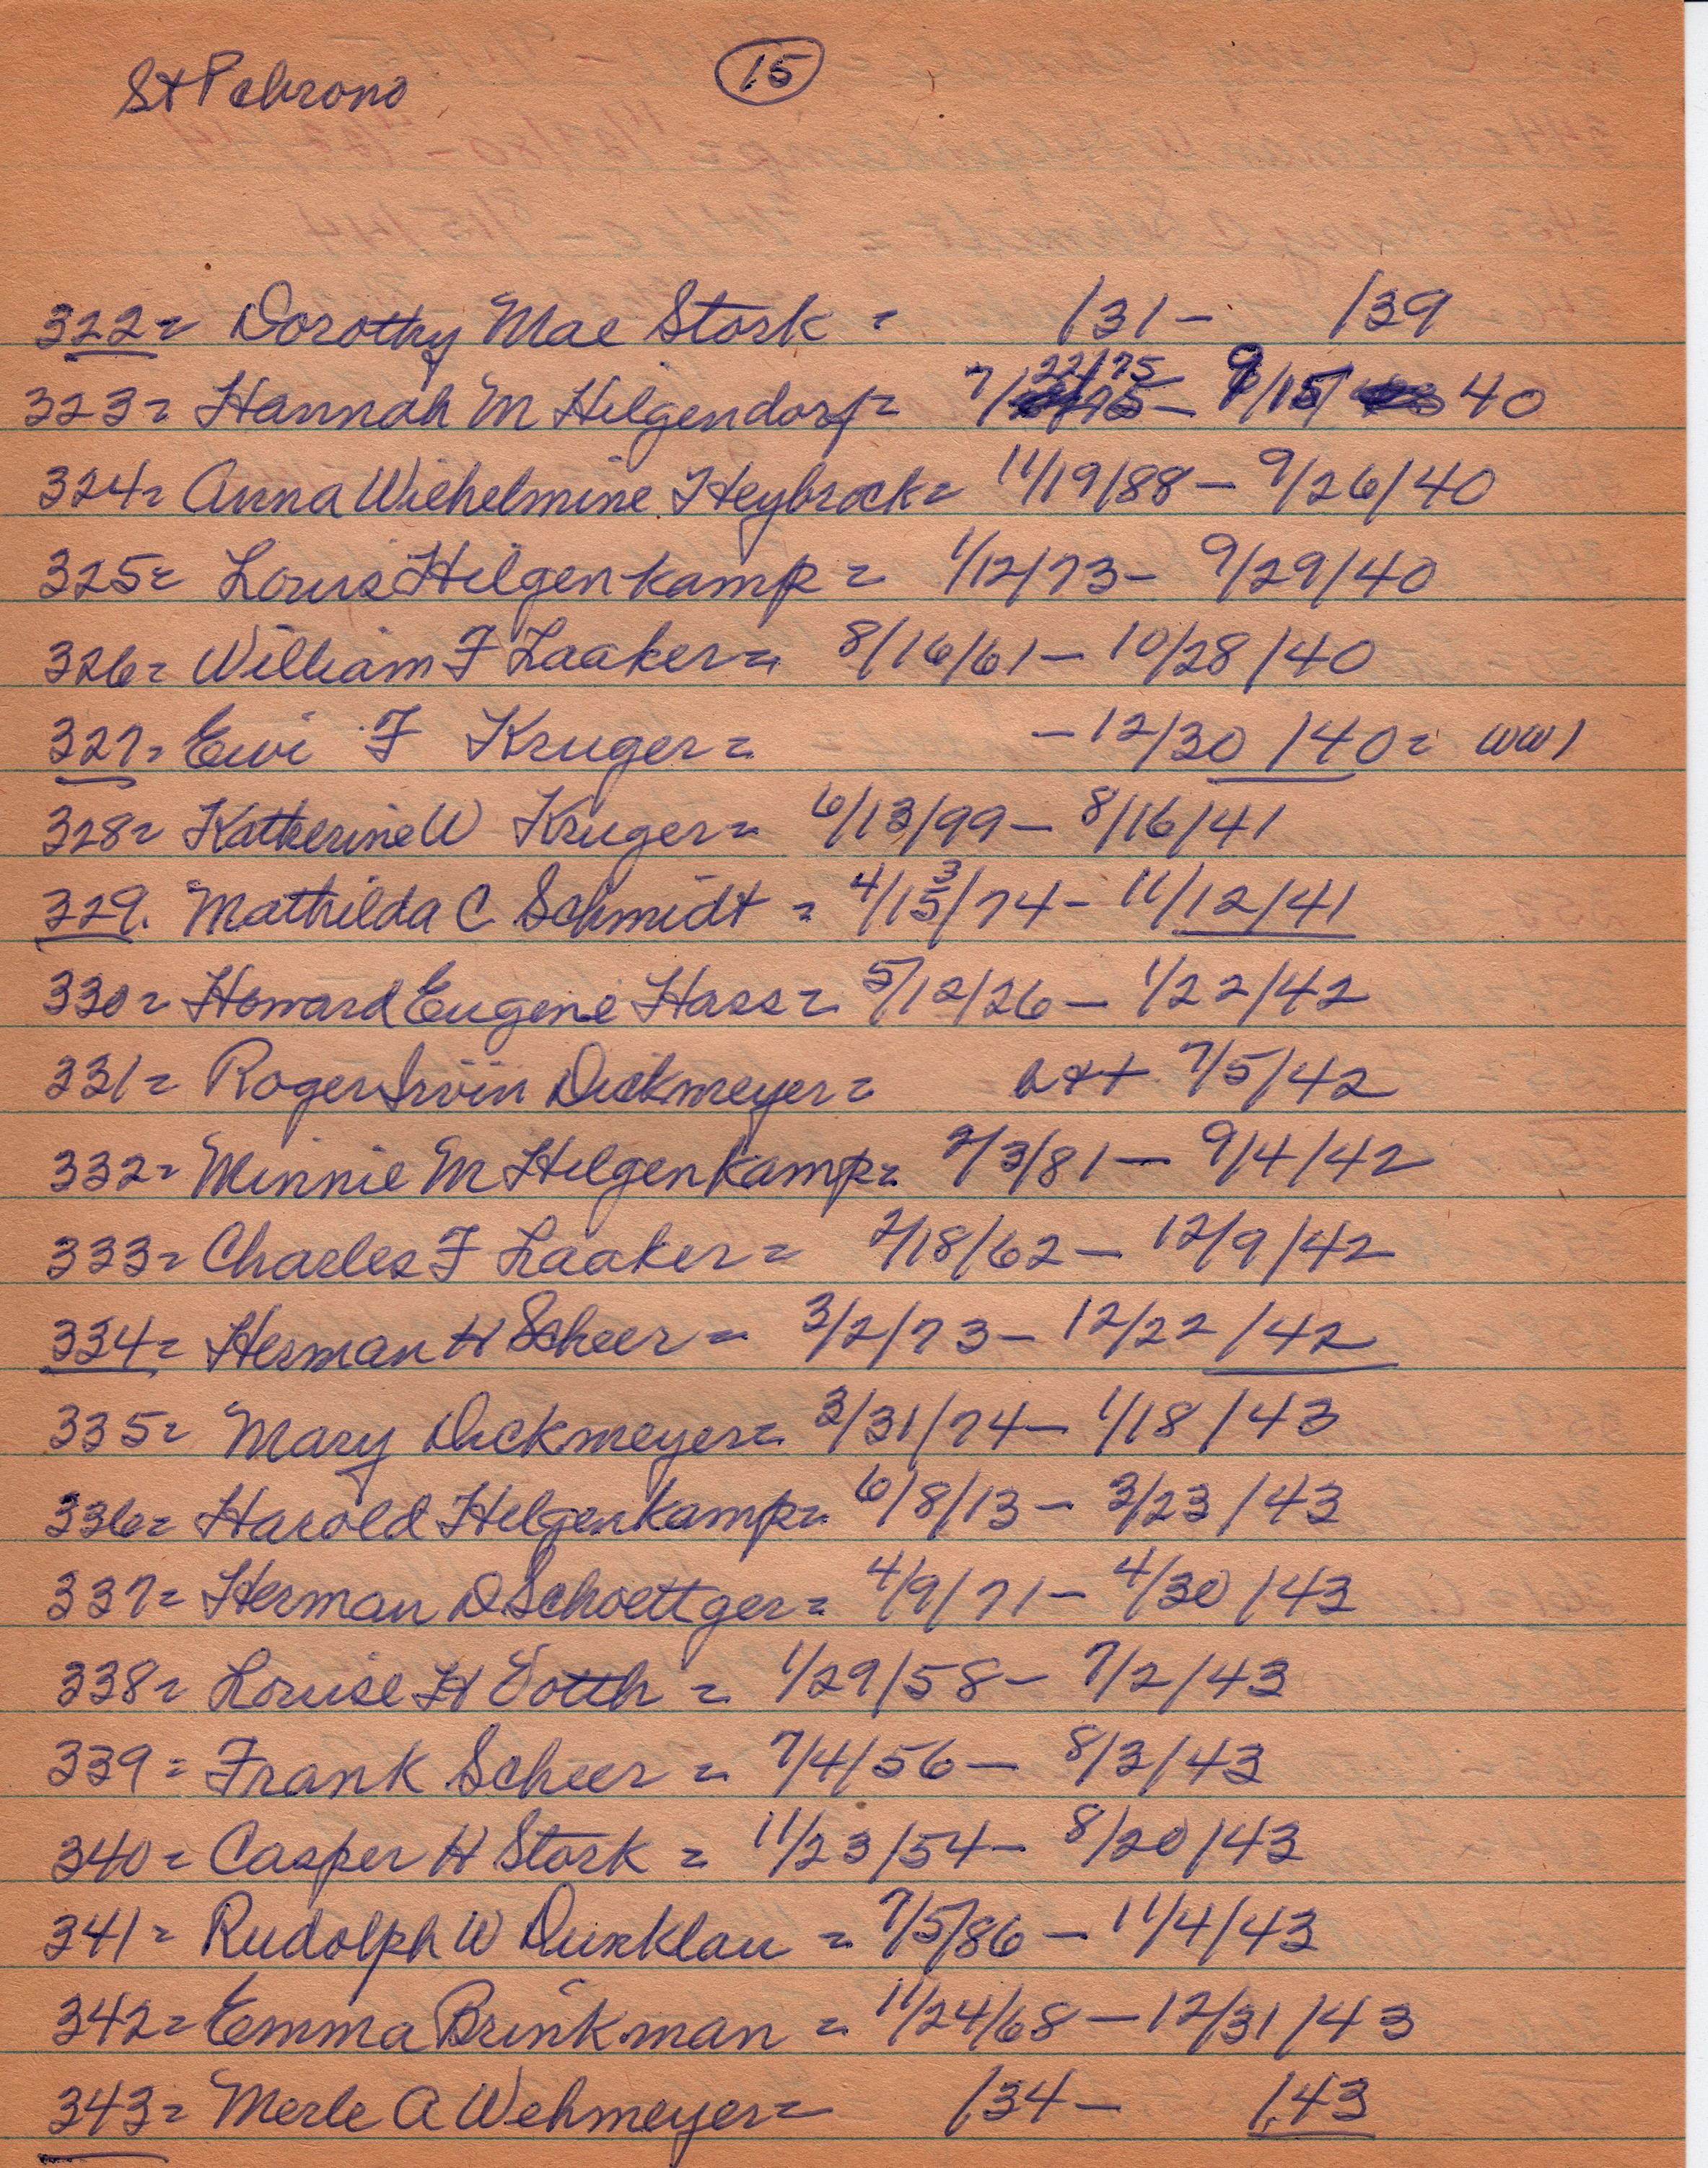 St P chrono
15
322= Dorothy Mae Stork = /31 - /39
323= Hannah M Hilgendorf= 7/22/75 - 9/15/ 40
324= Anna Wiehelmine Heybrock= 11/19/88 - 9/26/40
325= Louis Hilgenkamp = 1/12/73- 9/29/40
326= William F Laaker= 8/16/61- 10/28/40
327= Ewi F Kruger= -12/30/40= WW1
328= Katherine W Kruger= 6/13/99- 8/16/41
329. Mathilda C Schmidt = 4/15/74- 11/12/41
3
330= Howard Eugene Hass= 5/12/26- 1/22/42
331= Roger Irvin Dickmeyer= 7/5/42
332= Minnie M Hilgenkamp= 2/3/81- 9/4/42
333= Charles F Laaker= 2/18/62- 12/9/42
334= Herman H Scheer= 3/2/73- 12/22/42
335= Mary Dickmeyer= 3/31/74- 1/18/43
336= Harold Hilgenkamp= 6/8/13- 3/23/43
337= Herman D Schoettger= 4/9/71- 4/30/43
338= Louise H = 1/29/58- 7/2/43
339= Frank Scheer = 7/4/56- 8/3/43
340= Casper H Stork = 11/23/54- 8/20/43
341= Rudolph W Dunklau = 7/5/86- 11/4/43
342= Emma Brinkman = 11/24/68-12/31/43
343= Merle A Wehmeyer= /34- /43